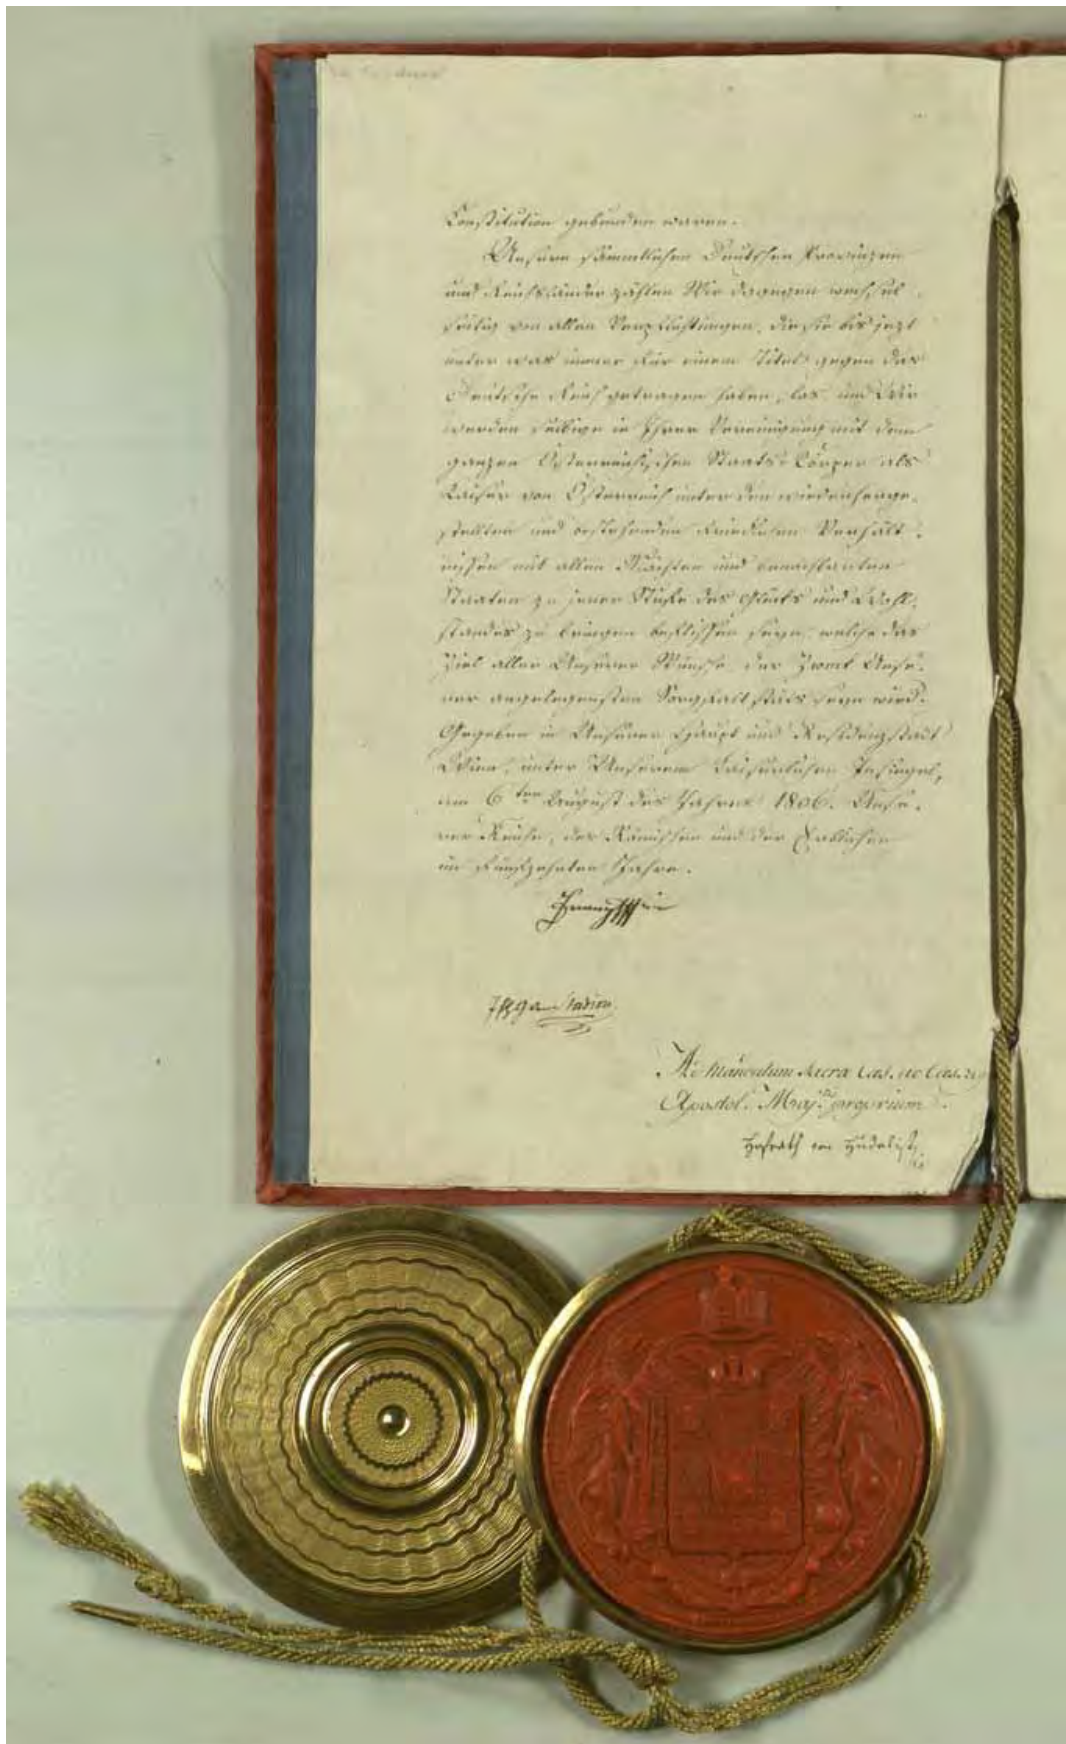 Constitution gebunden waren.
Unsere sämmtlichen Deutschen Provinzen
und Reichsländer zählen Wir dagegen wechsel-
seitig von allen Verpflichtungen, die sie bis jezt
unter was immer für einem Titel gegen das
Deutsche Reich getragen haben, los, und Wir
werden selbige in Ihrer Vereinigung mit dem
ganzen Österreichischen Staats-Körper als
Kaiser von Österreich unter den wiederherge-
stellten und bestehenden friedlichen Verhält-
nissen mit allen Mächten und benachbarten
Staaten zu jener Stuffe des Glücks und Wohl-
standes zu bringen beflissen seyn, welche das
Ziel aller Unserer Wünsche, der Zweck Unse-
rer angelegensten Sorgfalt stäts seyn wird.
Gegeben in Unserer Haupt und Residenzstadt
Wien, unter Unserem kaiserlichen Insiegel,
am 6ten August des Jahres 1806. Unse-
rer Reiche, des Römischen und der Erblichen
im fünfzehnten Jahre.
Franz
Stadion
Ad Mandatum Sacrae Caes. ac Caes. reg.
Apostol. Maj. proprium
Hofrath von Hudelist